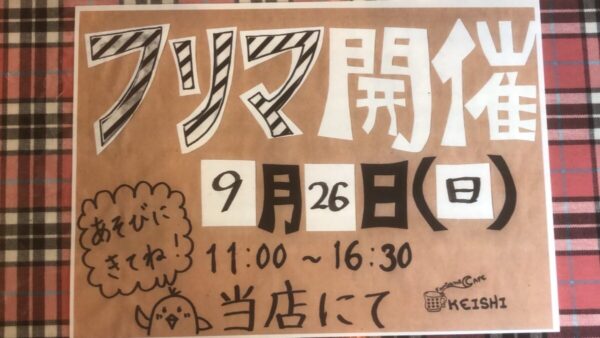 フリマ開催
9月26日(日)
あそびに
きてね!
11:00~16:30
当店にて
CAFE
KEISHI